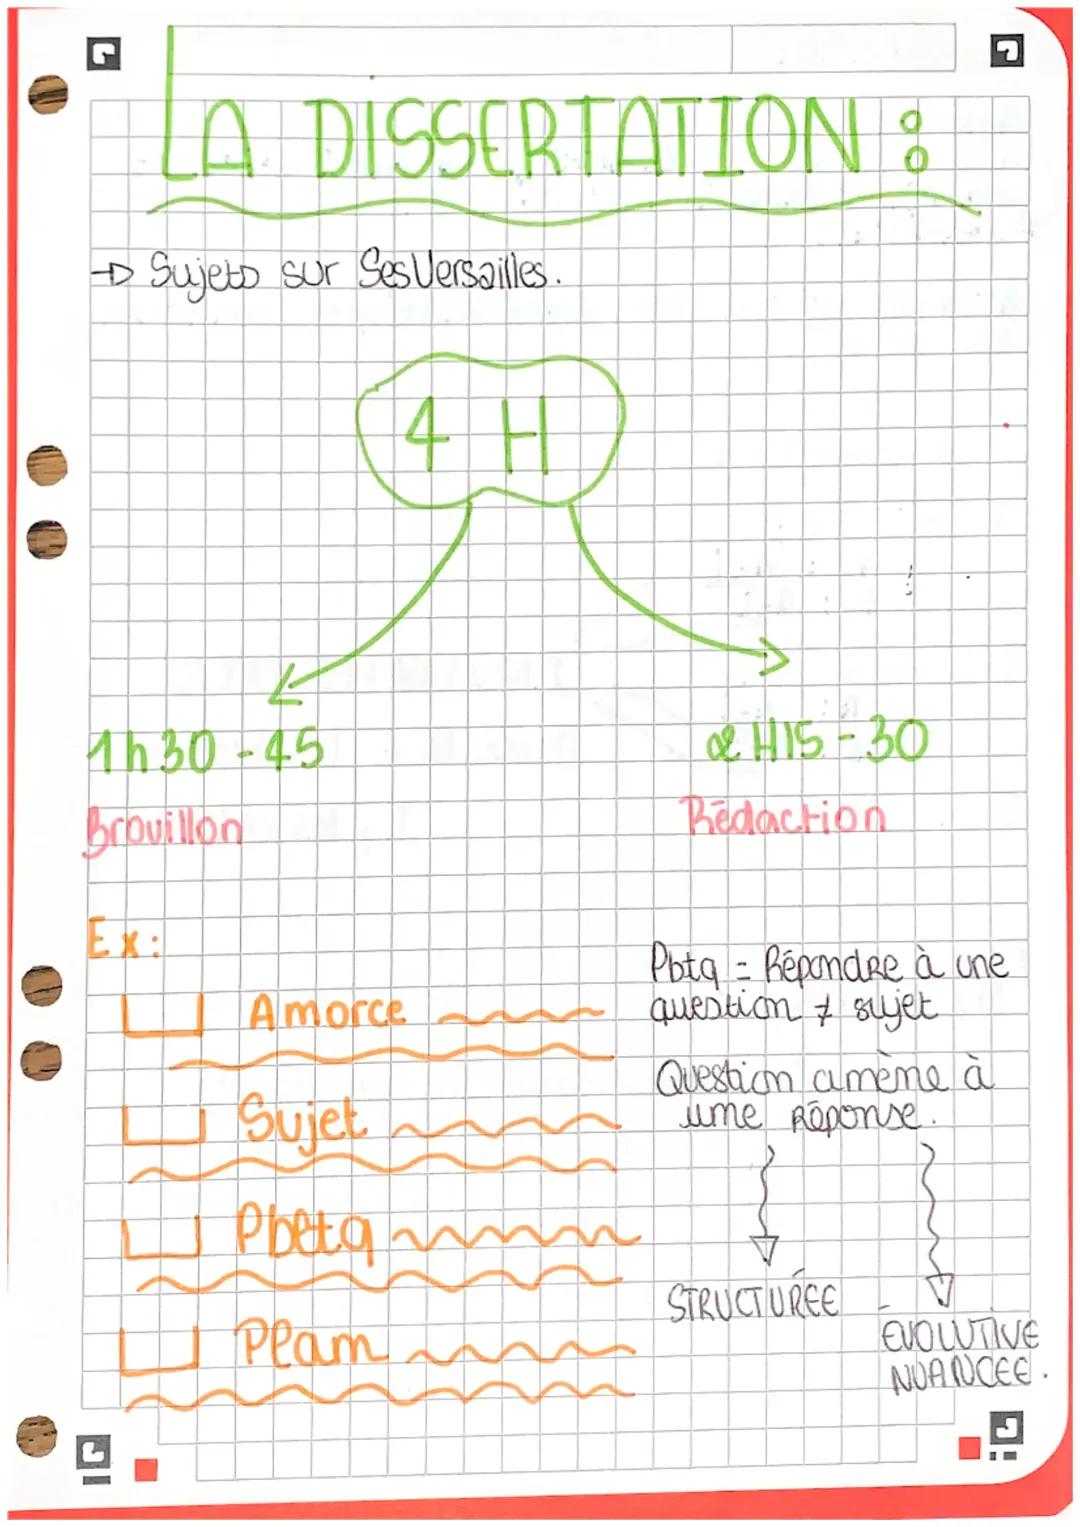 LA DISSERTATION :
→ Sujets sur SesVersailles.
4 H
1h30-45
2H15-30
Brouillon
Rédaction
Ex:
Amorce
Sujet
Pbtq
Plan
Pbtq = Répondre à une
question ≠ sujet
Question amène à
une réponse.
STRUCTURÉE
EVOLUTIVE
NUANCEE.